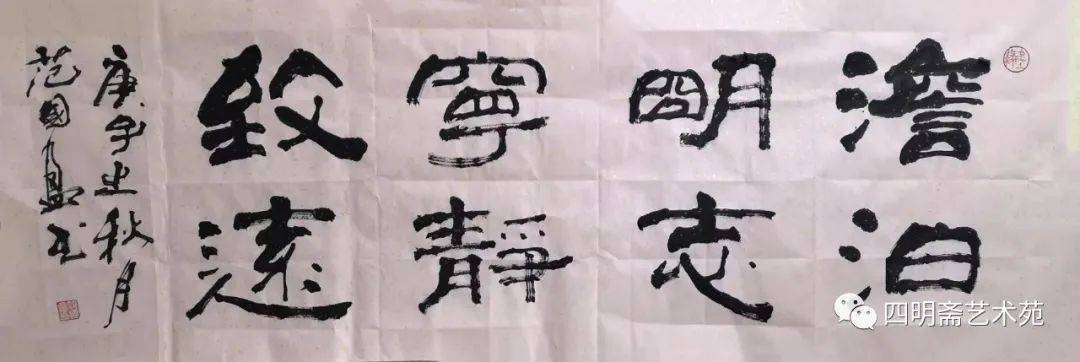 澹泊
明志
寧靜
致遠
庚子之秋月
范國盈书
四明斋艺术苑